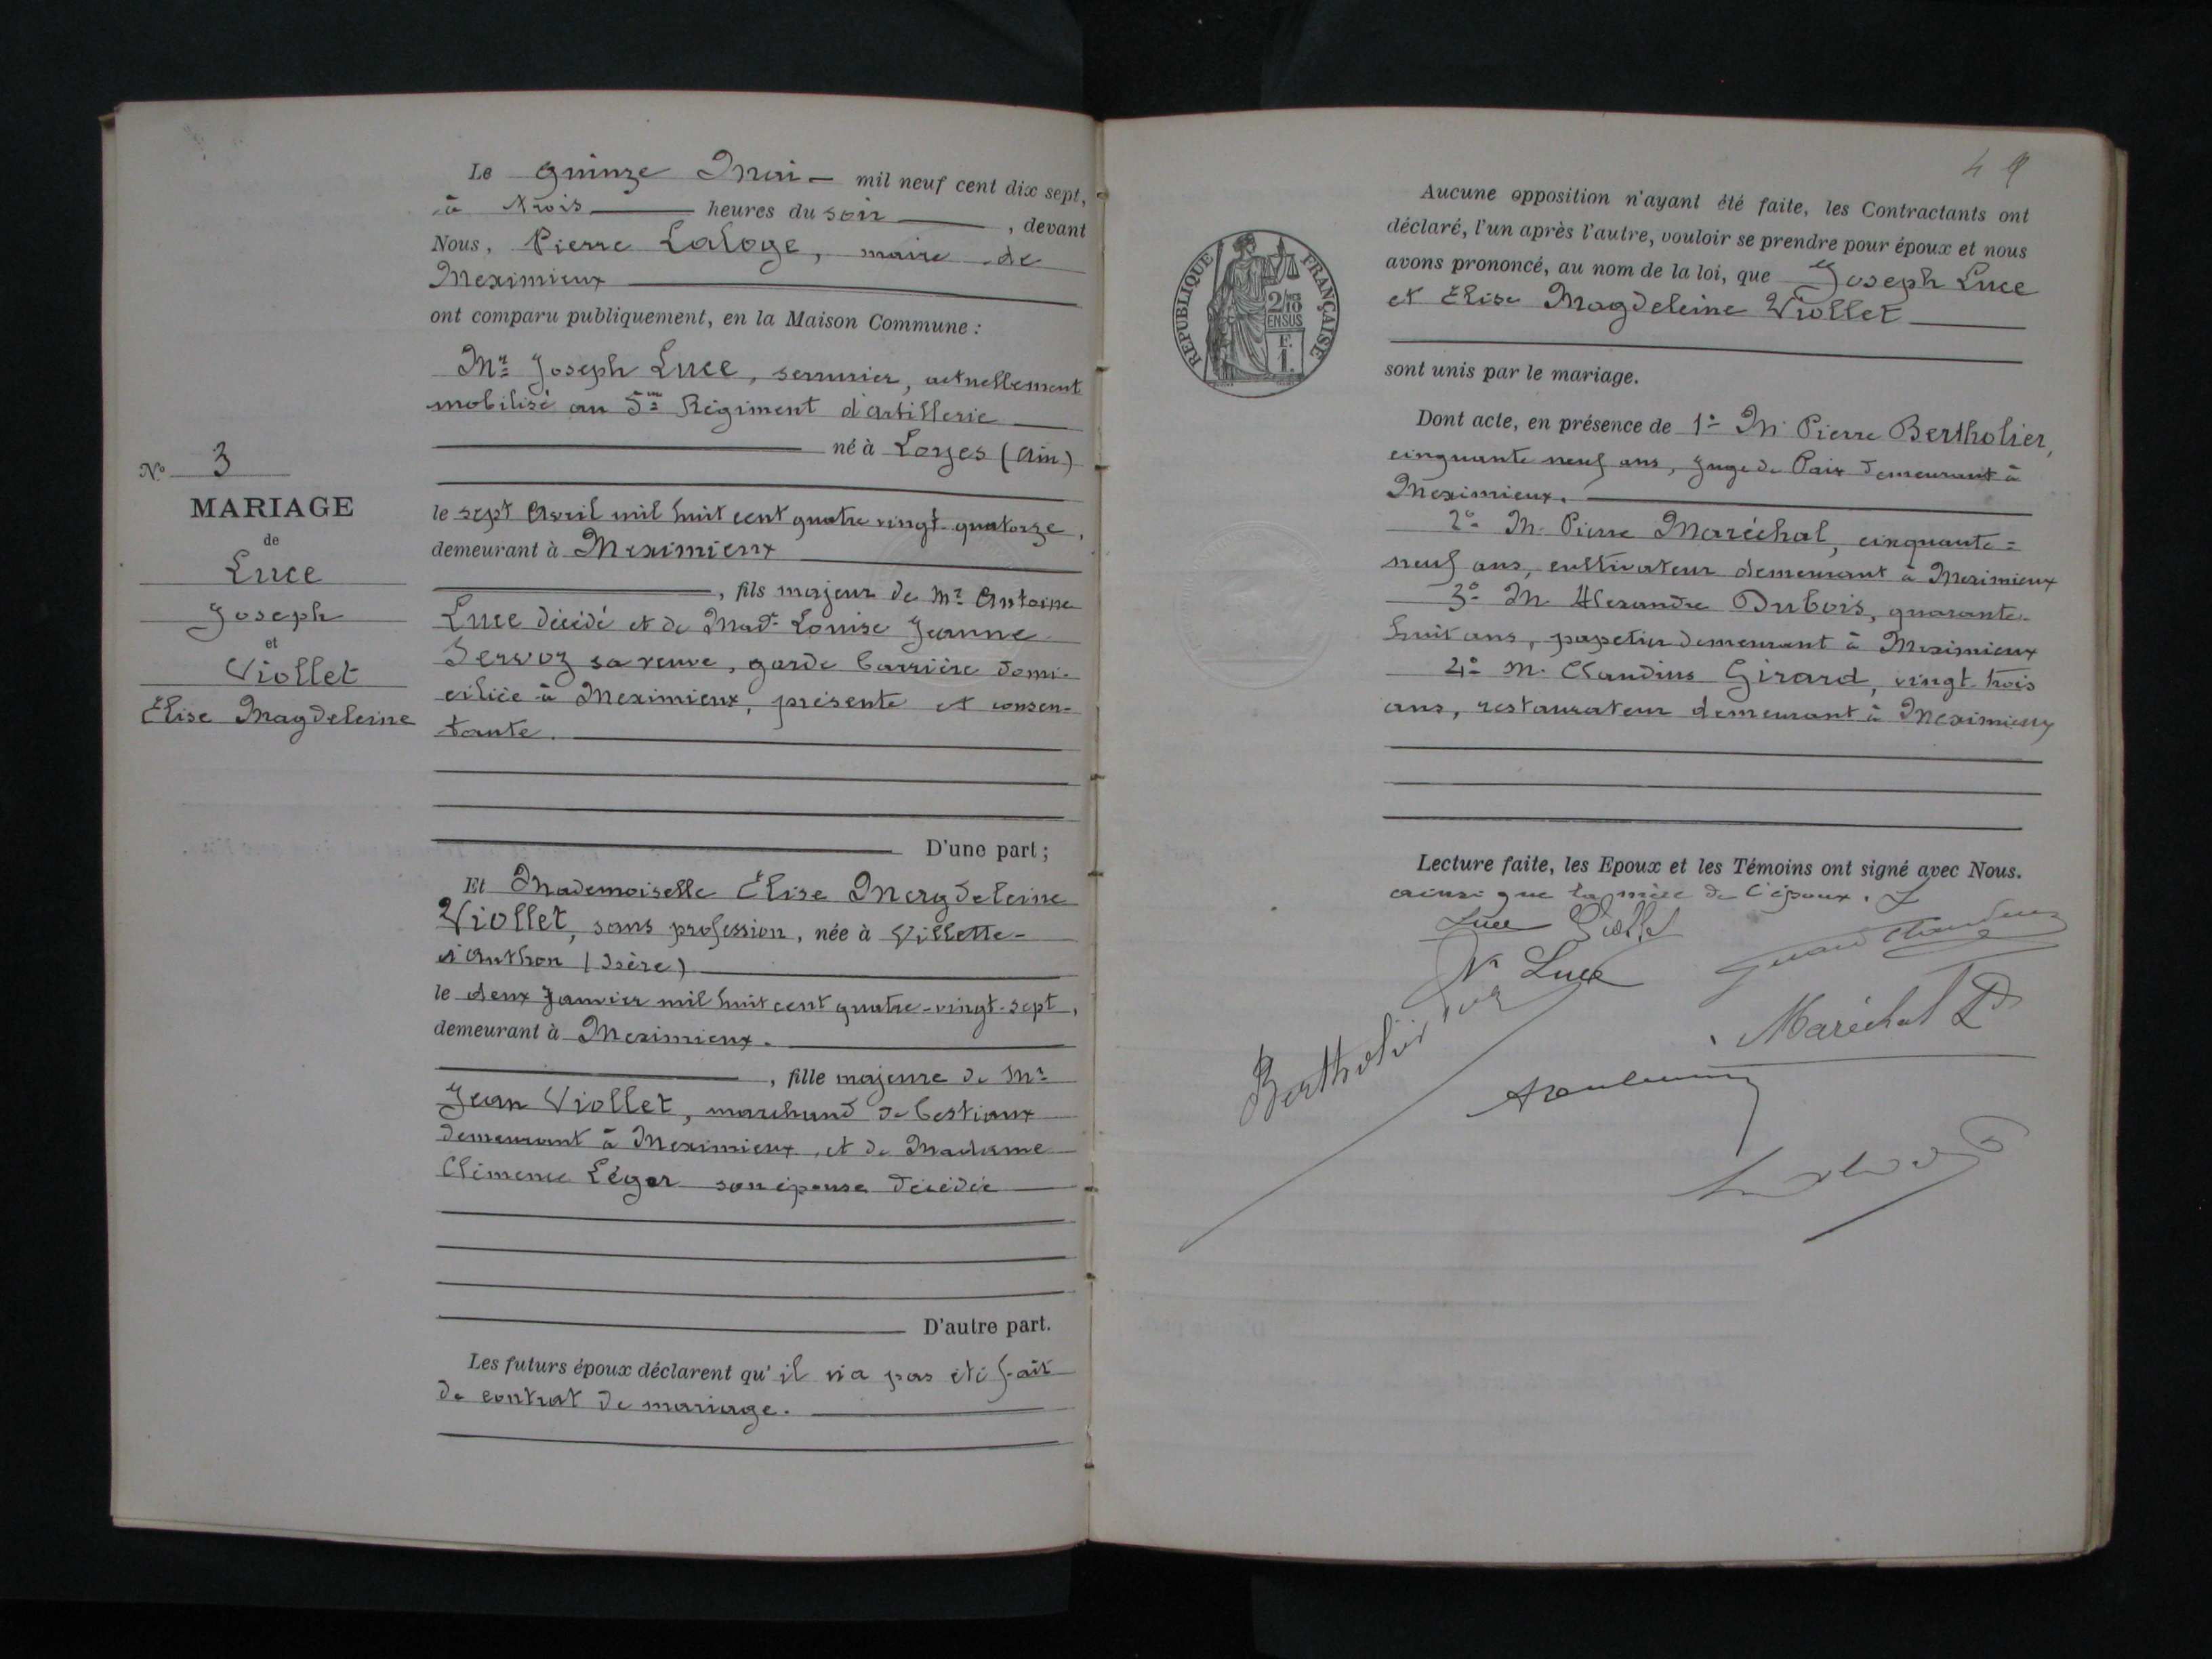 Le quinze Mai mil neuf cent dix sept,
à trois heures du soir, devant
Nous, Pierre Laloge, maire de
Meximieux
ont comparu publiquement, en la Maison Commune :
Mr Joseph Luce, serrurier, actuellement
mobilisé au 5me Régiment d'artillerie
né à Loyes (Ain)
N° 3
MARIAGE
de
Luce
Joseph
et
Viollet
Elise Magdeleine
le sept Avril mil huit cent quatre vingt-quatorze,
demeurant à Meximieux
, fils majeur de Mr Antoine
Luce décédé et de Made Louise Jeanne
Servoz sa veuve, garde barrière domi-
ciliée à Meximieux, présente et consen-
tante.
D'une part ;
Et Mademoiselle Elise Magdeleine
Viollet, sans profession, née à Villette-
d'Anthon (Isère)
le deux Janvier mil huit cent quatre-vingt-sept,
demeurant à Meximieux.
, fille majeure de Mr
Jean Viollet, marchand de bestiaux
demeurant à Meximieux, et de Madame
Clémence Léger son épouse décédée
D'autre part.
Les futurs époux déclarent qu'il n'a pas été fait
de contrat de mariage.
49
REPUBLIQUE FRANÇAISE
2/10
EN SUS
F.
1.
Aucune opposition n'ayant été faite, les Contractants ont
déclaré, l'un après l'autre, vouloir se prendre pour époux et nous
avons prononcé, au nom de la loi, que Joseph Luce
et Elise Magdeleine Viollet
sont unis par le mariage.
Dont acte, en présence de 1° M Pierre Bertholier,
cinquante neuf ans, Juge de Paix demeurant à
Meximieux.
2° M. Pierre Maréchal, cinquante=
neuf ans, cultivateur demeurant à Meximieux
3° M Alexandre Dubois, quarante-
huit ans, papetier demeurant à Meximieux
4° M. Claudius Girard, vingt-trois
ans, restaurateur demeurant à Meximieux
Lecture faite, les Epoux et les Témoins ont signé avec Nous.
ainsi que la mère de l'époux.
Luce Viollet
Girard Claudius
Ve Luce
Bertholier
Maréchal P